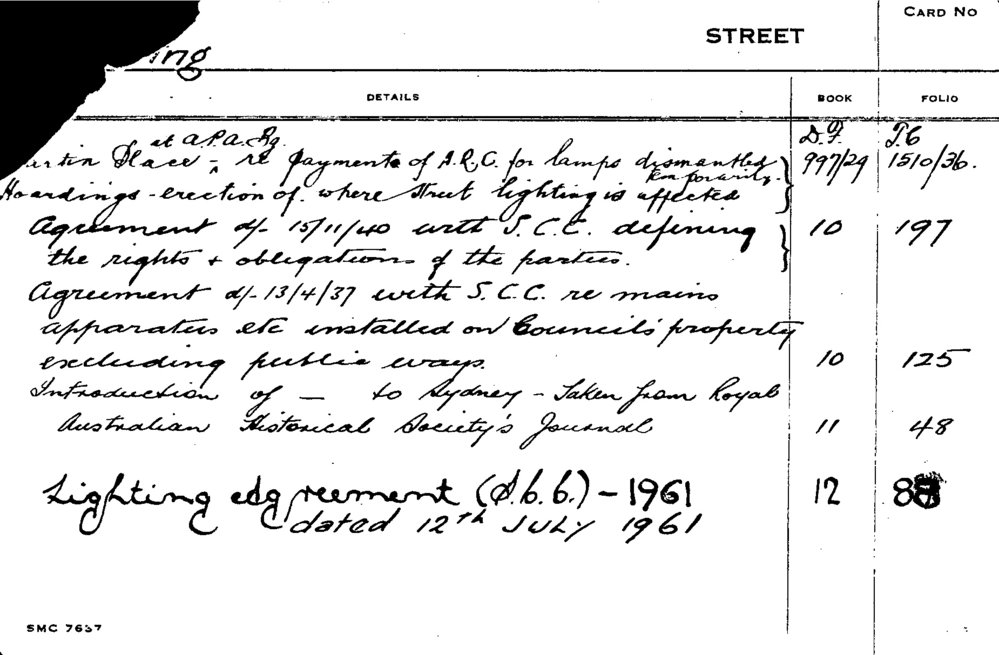 CARD NO
STREET
ing
DETAILS BOOK FOLIO
at A.P.A. Bg. D.F. T.C
artin Place - re payments of A.R.C. for lamps dismantled 997/29 1510/36.
temporarily.
Hoardings - erection of. where street lighting is affected
Agreement d/- 15/11/40 with S.C.C. defining 10 197
the rights + obligations of the parties.
Agreement d/- 13/4/37 with S.C.C. re mains
apparatus etc installed on Council's property
excluding public ways. 10 125
Introduction of — to Sydney - Taken from Royal
Australian Historical Society's Journal 11 48
Lighting Agreement (S.C.C.) - 1961 12
dated 12th JULY 1961
SMC 7637